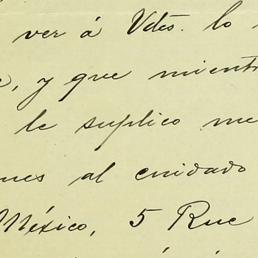 ver á Vdes. lo
, y que mient
le suplico me
nes al cuidado
México, 5 Rue